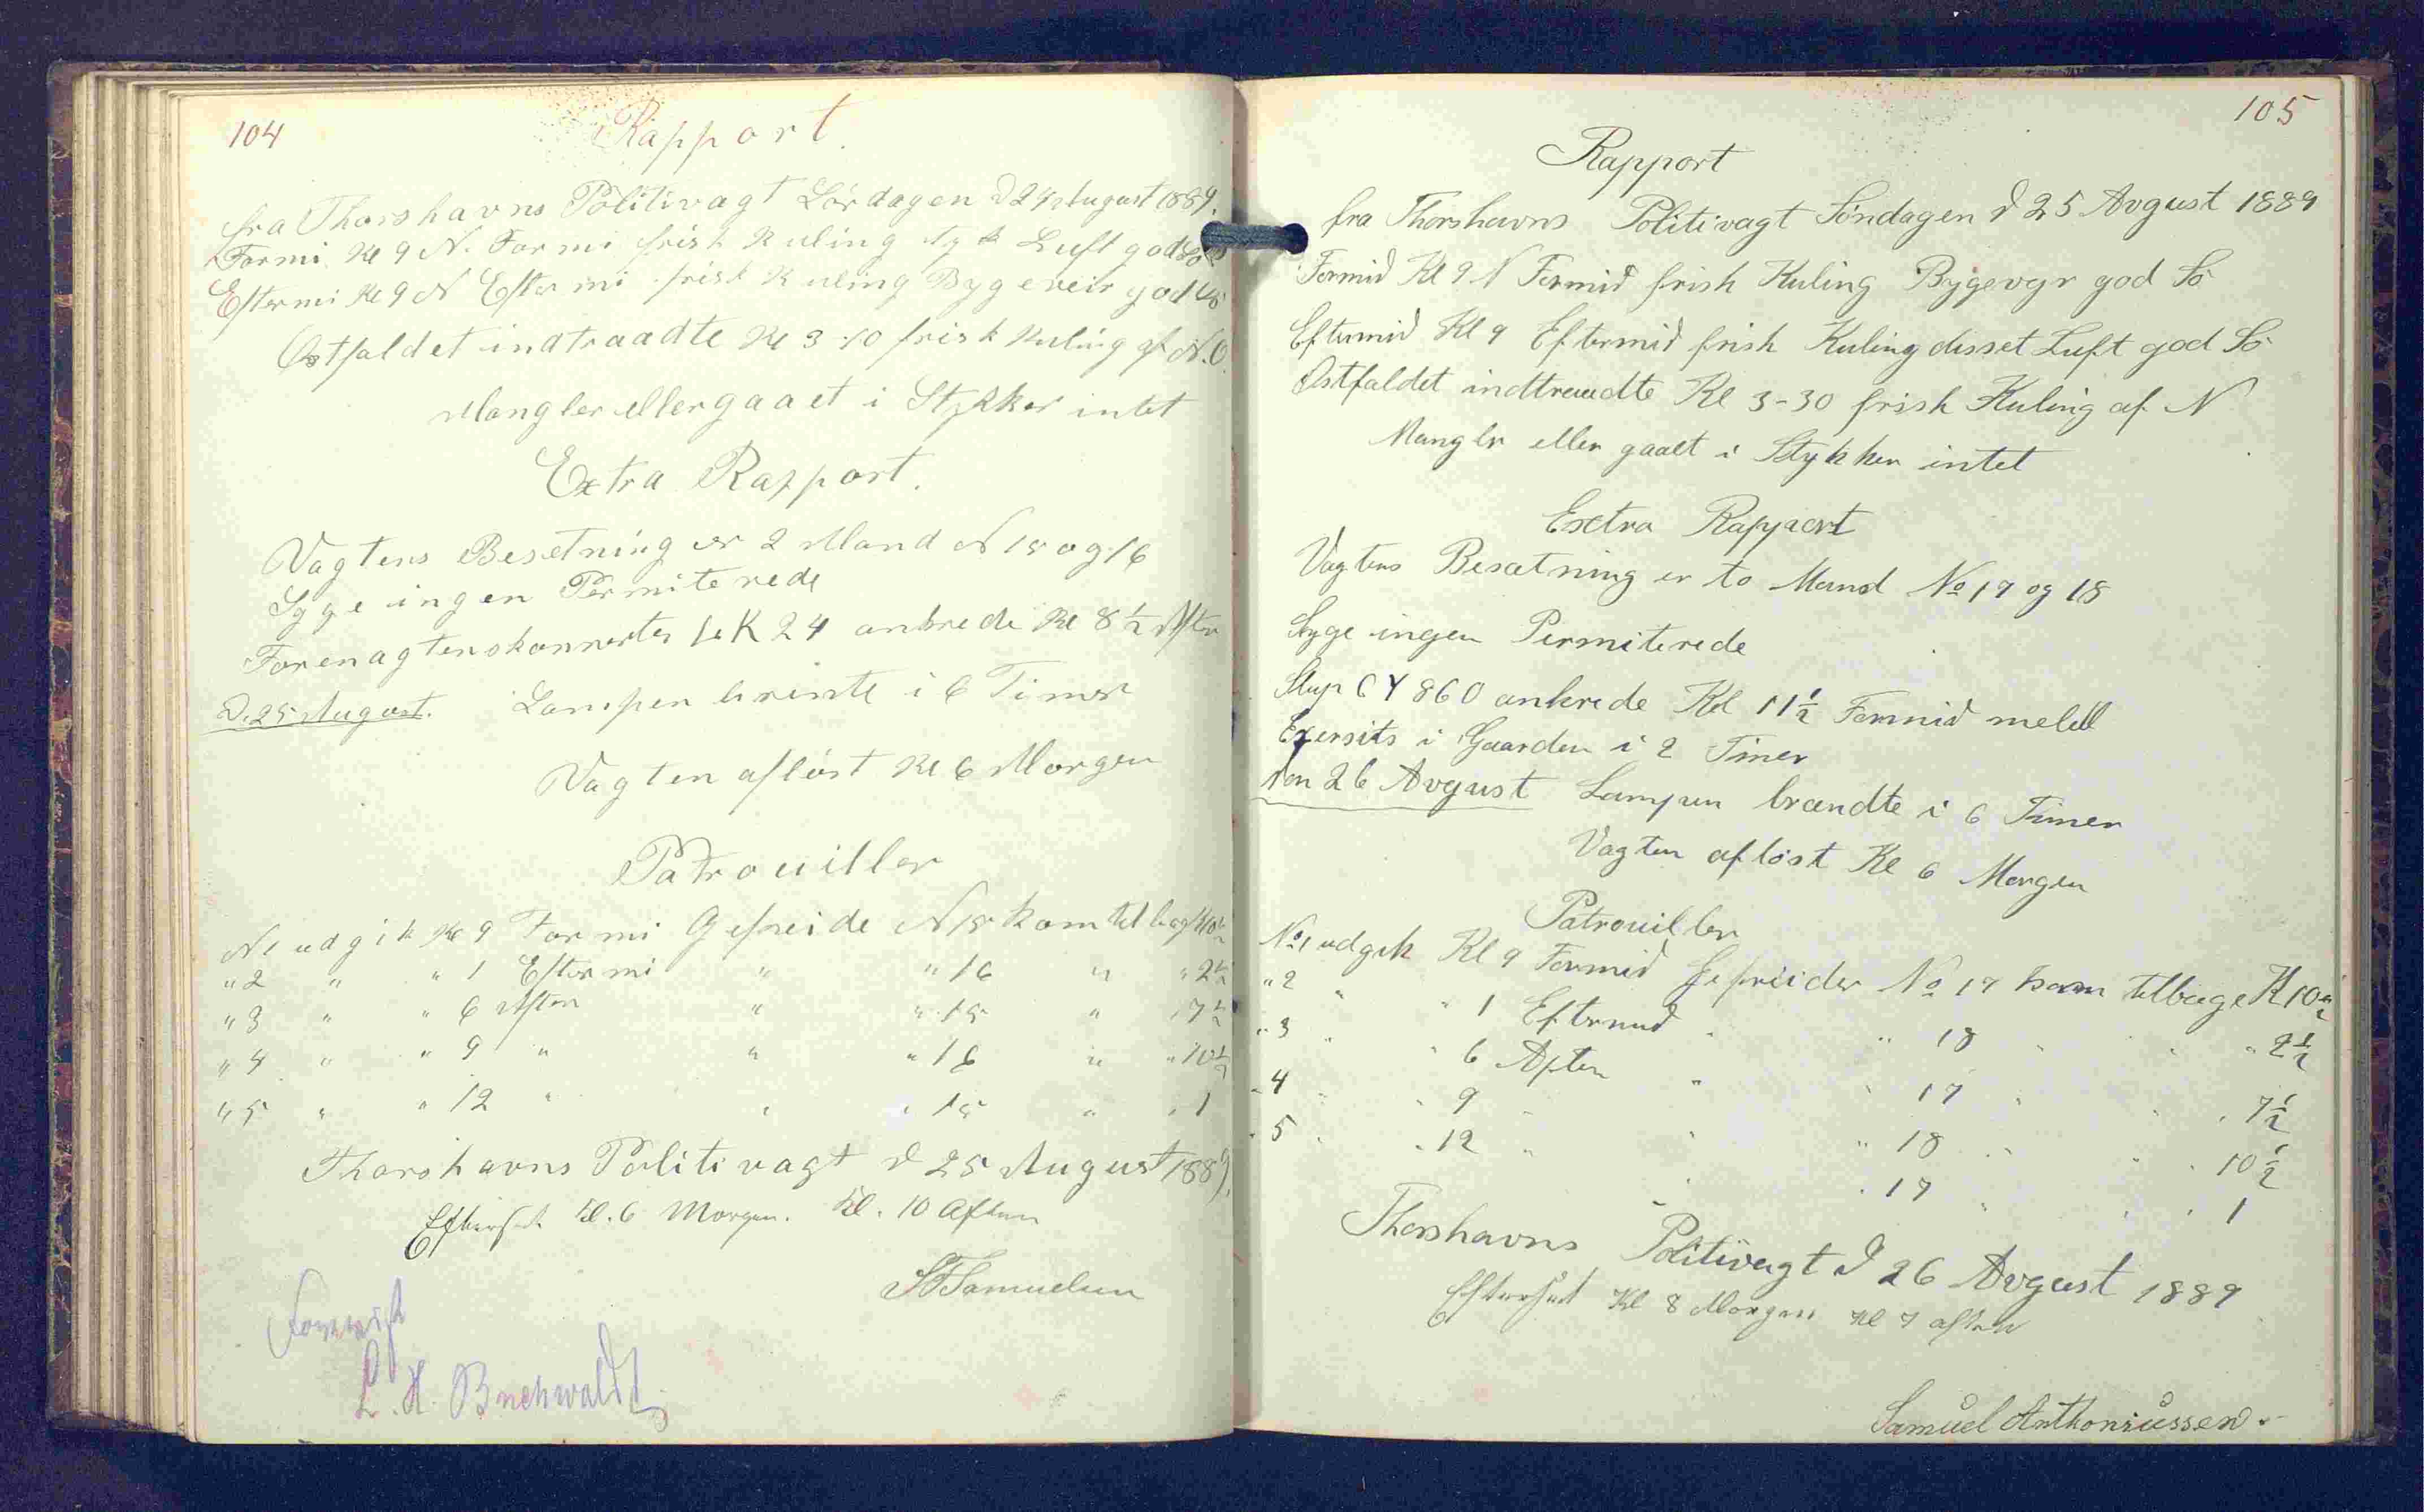 104
Rapport.
fra Thorshavns Politivagt Lördagen d 24 August 1889.
Formi Kl 9 N. Formi frisk Kuling tyk Luft god Sö
Eftermi Kl 9 N Eftermi frisk Kuling Bygeveir god Sö
Østfaldet indtraadte Kl 3-10 frisk Kuling af N.O.
Mangler eller gaaet i Stykker intet
Extra Rapport.
Vagtens Besetning er 2 Mand N 15 og 16
Syge ingen Permiterede
LK 24 ankrede Kl 8 1/2 Aften
D. 25 August. Lampen brente i 6 Timer
Vagten aflöst Kl 6 Morgen
Patrouiller
N 1 udgik Kl 9 Formi Gefreide N 15 kom tilbage Kl 10 1/2
" 2 " " 1 Eftermi " " 16 " " 2 1/2
" 3 " " 6 Aften " " 15 " " 7 1/2
" 4 " " 9 " " " 16 " " 10 1/2
" 5 " " 12 " " " 15 " " 1
Thorshavns Politivagt d 25 August 1889.
Efterset Kl. 6 Morgen. Kl. 10 Aften
Samuelsen
L. H. Buchwaldt
105
Rapport
fra Thorshavns Politivagt Söndagen d 25 Avgust 1889
Formid Kl 9 N Formid frisk Kuling Bygevejr god Sö
Eftermid Kl 9 Eftermid frisk Kuling disset Luft god Sö
Østfaldet indtraadte Kl 3-30 frisk Kuling af N
Mangler eller gaaet i Stykker intet
Exctra Rapport
Vagtens Besætning er to Mand No 17 og 18
Syge ingen Permiterede
Slup GY 860 ankrede Kl 11 1/2 Formid meldt
Exersits i Gaarden i 2 Timer
den 26 Avgust Lampen brændte i 6 Timer
Vagten aflöst Kl 6 Morgen
Patrouiller
No 1 udgik Kl 9 Formid Gefreider No 17 kom tilbage K 10 1/2
" 2 " " 1 Eftermid " " 18 " " " 2 1/2
" 3 " " 6 Aften " " 17 " " " 7 1/2
" 4 " " 9 " " " 18 " " " 10 1/2
" 5 " " 12 " " " 17 " " " 1
Thorshavns Politivagt d 26 Avgust 1889
Efterset Kl 8 Morgen Kl 7 aften
Samuel Anthoniussen.